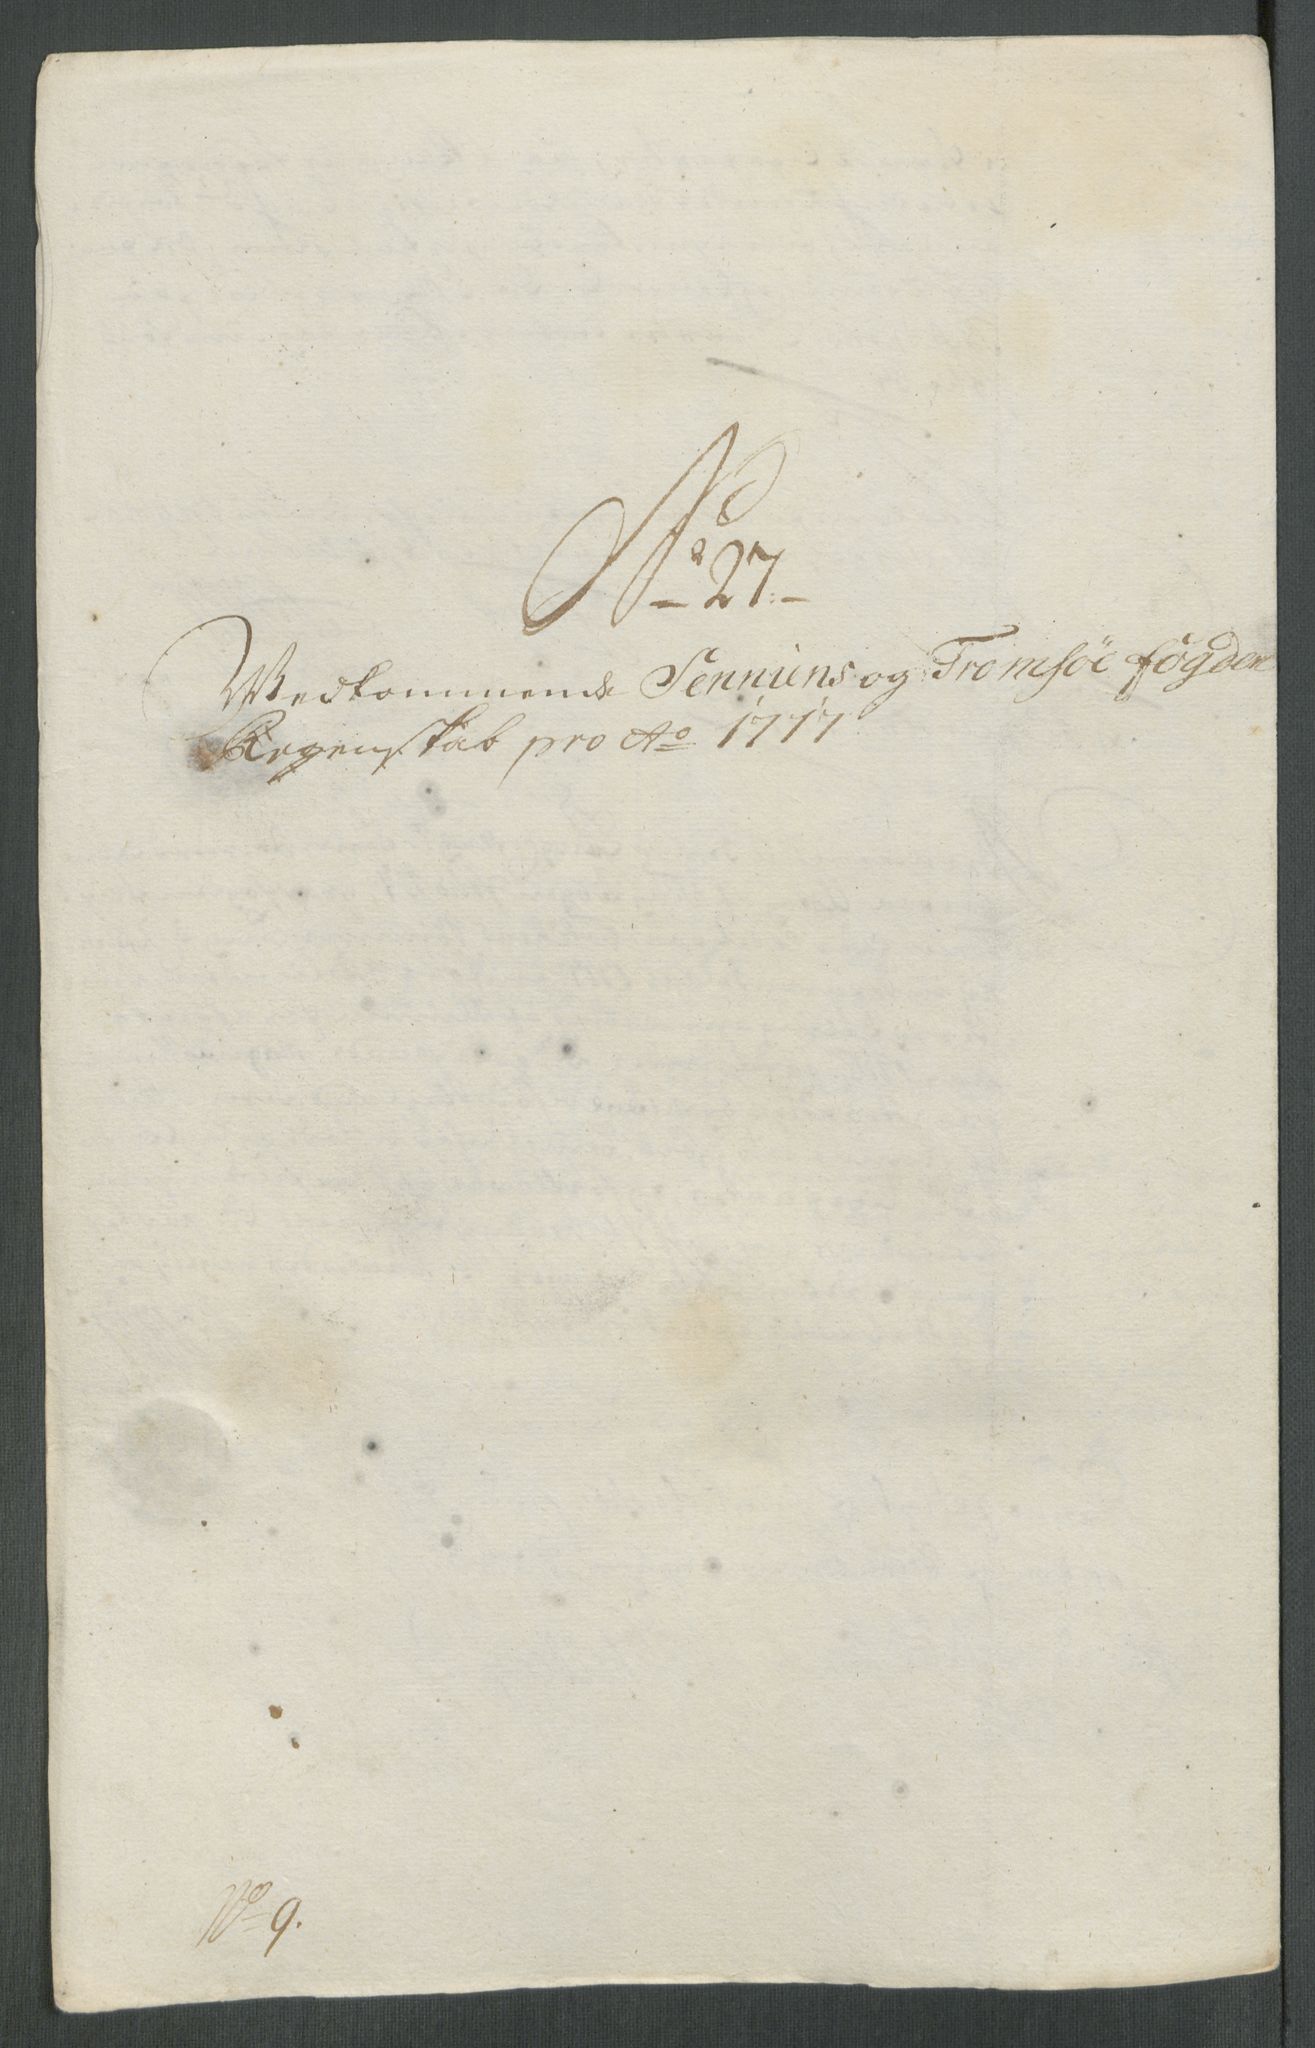 No 27.
Wedkommende Senniens og Tromsöe fögderi
Regenskab pro Ao 1717
No 9.